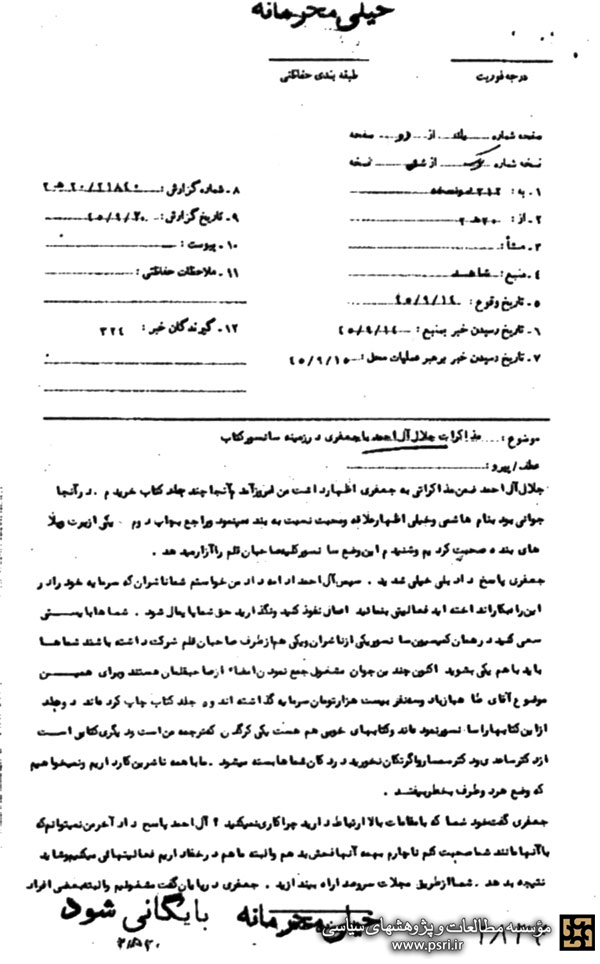 خیلی محرمانه
درجه فوریت
طبقه بندی حفاظتی
صفحه شماره یک از دو صفحه
نسخه شماره از نسخه
۱ـ به : ۳۱۲
۲ـ از : ۲۰ ه ۲
۳ـ منشأ :
۴ـ منبع : شاهد
۵ـ تاریخ وقوع : ۴۵/۹/۱۴
۶ـ تاریخ رسیدن خبر بمنبع : ۴۵/۹/۱۴
۷ـ تاریخ رسیدن خبر برهبر عملیات محل : ۴۵/۹/۱۵
۸ـ شماره گزارش :
۹ـ تاریخ گزارش : ۴۵/۹/۲۰
۱۰ـ پیوست :
۱۱ـ ملاحظات حفاظتی :
۱۲ـ گیرندگان خبر : ۳۲۴
موضوع : مذاکرات جلال آل احمد با جعفری در زمینه سانسور کتاب
عطف / پیرو :
جلال آل احمد ضمن مذاکراتی به جعفری اظهار داشت من امروز آمدم آنجا چند جلد کتاب خریدم . در آنجا
جوانی بود بنام هاشمی و خیلی اظهار علاقه و محبت نسبت به بنده مینمود و راجع بچاپ دوم یکی از
های بنده صحبت کردیم و شنیدم این وضع سانسور کلیه صاحبان قلم را آزار میدهد .
جعفری پاسخ داد بلی خیلی شدید . سپس آل احمد ادامه داد من خواستم شما ناشران که سرمایه خود را در
این راه بکار انداخته اید فعالیتی بنمائید اعمال نفوذ کنید و نگذارید حق شما پایمال شود . شماها بایستی
سعی کنید در همان کمیسیون سانسور یکی از ناشران و یکی هم از طرف صاحبان قلم شرکت داشته باشند شماها
باید با هم یکی بشوید . اکنون چند بن جوان مشغول جمع نمودن امضاء از صاحبقلمان هستند و برای همین
موضوع آقای طاهباز با سه نفر بیست هزار تومان سرمایه گذاشته اند و جلد کتاب چاپ کرده اند دو جلد
از این کتابها را سانسور نموده اند و کتابهای خوبی هم هست یکی کرگدن که ترجمه من است و دیگری کتابی است
از دکتر ساعدی و دکتر سمسار و اگر تکان نخورید در دکان شماها بسته میشود . ما با همه ناشرین کار داریم و نمیخواهیم
که وضع هر دو طرف بخطر بیفتد .
جعفری گفت خود شما که با مقامات بالا ارتباط دارید چرا کاری نمیکنید ؟ آل احمد پاسخ داد آخر من نمیتوانم که
با آنها مانند شما صحبت کنم ناچارم بهمه آنها فحش بدهم والبته ما هم در خفا داریم فعالیتهائی میکنیم و شاید
نتیجه بدهد . شما از طریق مجلات سروصدا راه بیندازید . جعفری در پایان گفت مشغولیم والبته بعضی افراد
خیلی محرمانه
بایگانی شود
مؤسسه مطالعات و پژوهشهای سیاسی
www.psri.ir